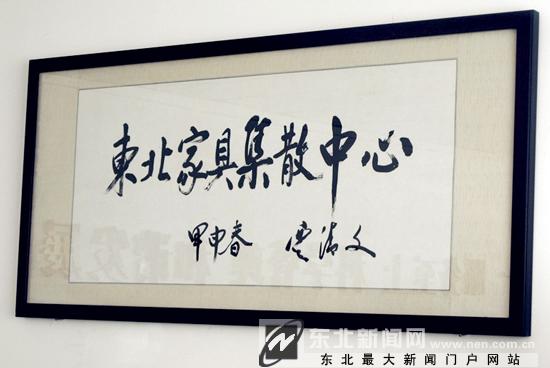 東北家具集散中心
甲申春 文
东北新闻网 www.nen.com.cn
东北最大新闻门户网站